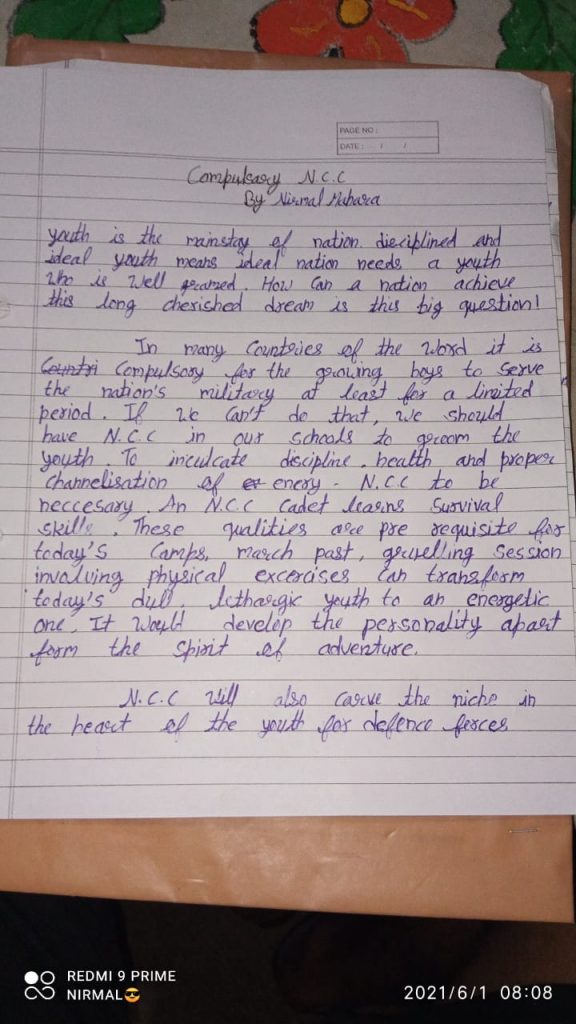 PAGE NO :
DATE : / /
Compulsary N.C.C
By Nirmal Mahara
youth is the mainstay of nation. dieciplined and
ideal youth means ideal nation needs a youth
Who is Well groomed. How Can a nation achieve
this long cherished dream is this big question!
In many Countries of the Word it is
Countri Compulsory for the growing boys to serve
the nation's military at least for a limited
period. If We Can't do that, We should
have N.C.C in our schools to groom the
youth. To inculcate discipline, health and proper
channelisation of enery. N.C.C to be
neccesary. An N.C.C Cadet learns Survival
skills. These qualities are pre requisite for
today's Camps, march past, gruelling Session
involving physical excercises Can transform
today's dull, lethargic youth to an energetic
one. It Would develop the personality apart
form the spirit of adventure.
N.C.C Will also carve the niche in
the heart of the youth for defence forces
REDMI 9 PRIME
NIRMAL😎
2021/6/1 08:08